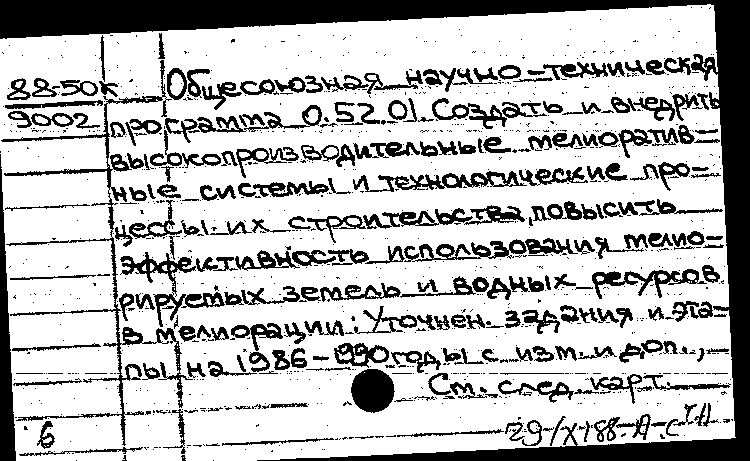 88-50к Общесоюзная научно-техническая
9002 программа 0.52.01. Создать и внедрить
высокопроизводительные мелиоратив-
ные системы и технологические про-
цессы их строительства, повысить
эффективность использования мелио-
рируемых земель и водных ресурсов
в мелиорации: Уточнен. задания и эта-
пы на 1986-1990 годы с изм. и доп.,
См. след. карт.
6 29/X-88.